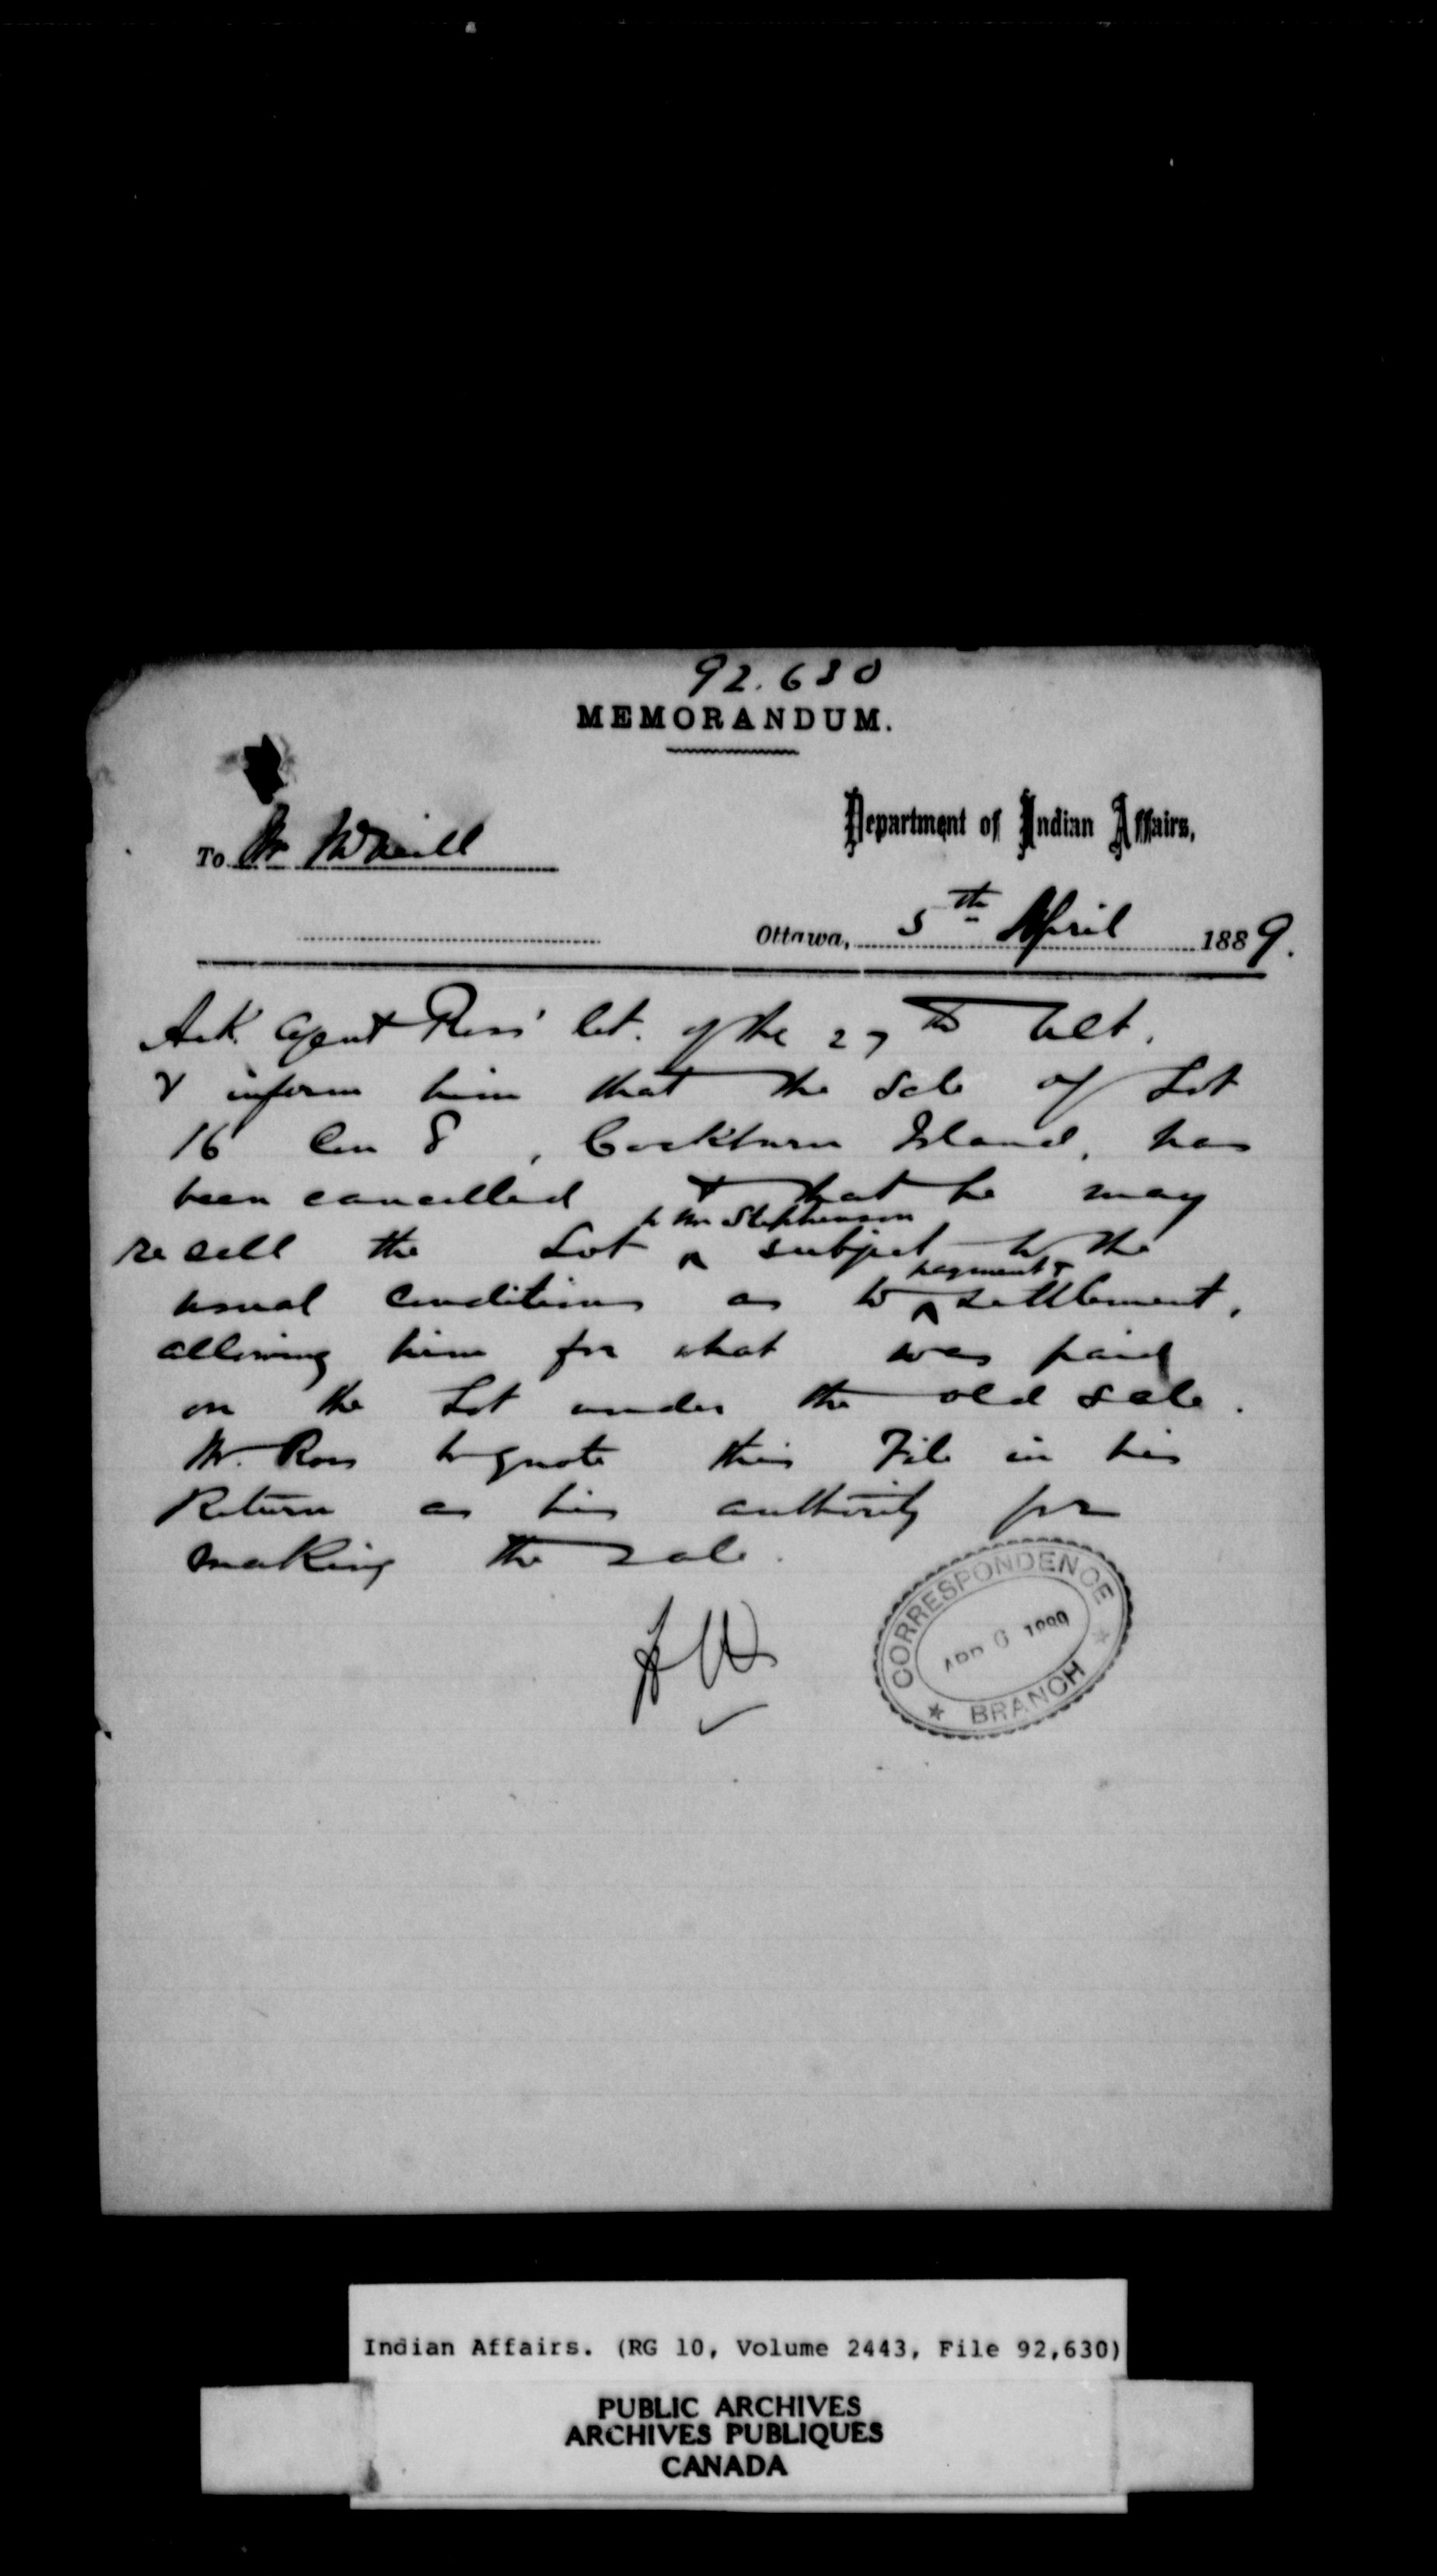 92.630
MEMORANDUM.
Department of Indian Affairs,
To Mr McNeill
Ottawa, 5th April 1889.
Ack. Agent Ross' let. of the 27th Ult.
& inform him that the sale of Lot
16 Con 8, Cockburn Island, has
been cancelled & that he may
to Mr Stephenson
resell the Lot ^ subject to the
payment &
usual conditions as to ^ settlement,
allowing him for what was paid
on the Lot under the old sale.
Mr. Ross to quote this File in his
Return as his authority for
making the sale.
CORRESPONDENCE
APR 6 1889
BRANCH
Indian Affairs. (RG 10, Volume 2443, File 92,630)
PUBLIC ARCHIVES
ARCHIVES PUBLIQUES
CANADA